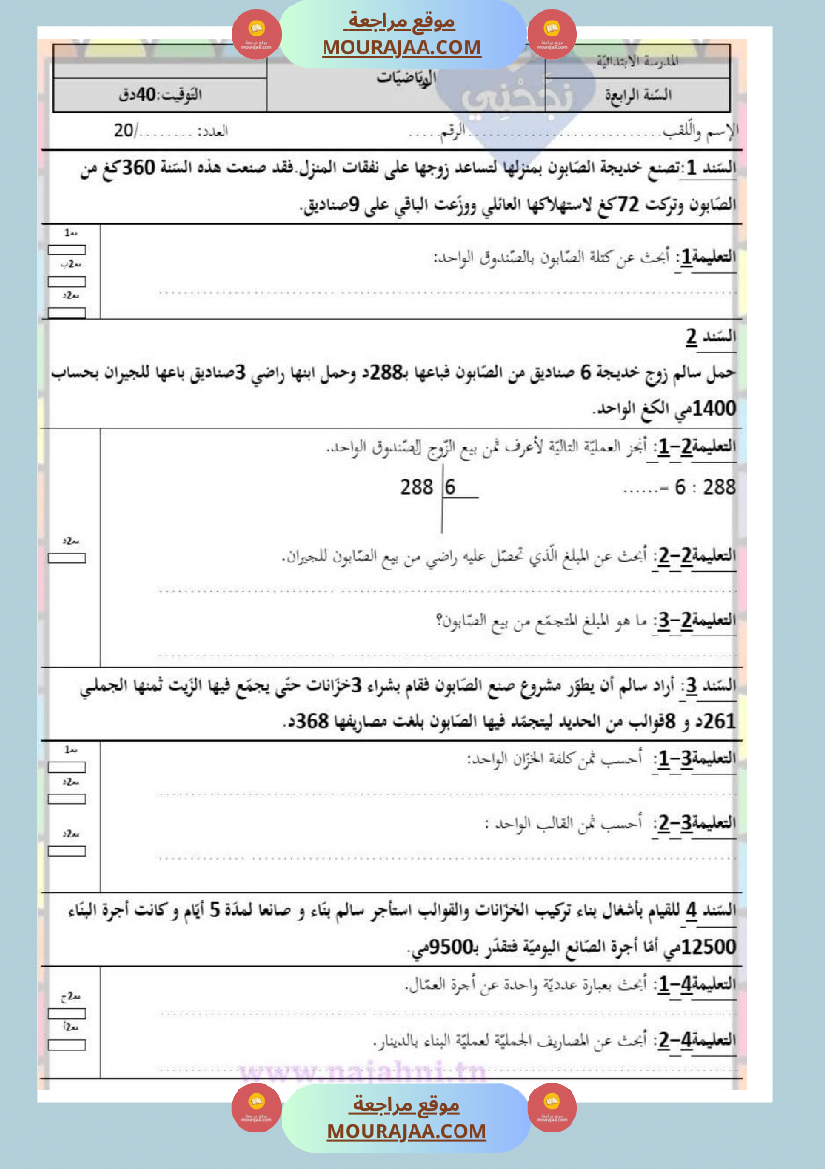 موقع مراجعة
MOURAJAA.COM
المدرسة الابتدائيّة
الرياضيّات
السّنة الرابعة
التوقيت:40دق
الإسم واللّقب............................الرقم.....
العدد: ......../20
السّند 1:تصنع خديجة الصّابون بمنزلها لتساعد زوجها على نفقات المنزل.فقد صنعت هذه السّنة 360كغ من
الصّابون وتركت 72كغ لاستهلاكها العائلي ووزّعت الباقي على 9صناديق.
التعليمة1: أبحث عن كتلة الصّابون بالصّندوق الواحد:
مع1
مع2ب
مع2د
السّند 2
حمل سالم زوج خديجة 6 صناديق من الصّابون فباعها ب288د وحمل ابنها راضي 3صناديق باعها للجيران بحساب
1400مي الكغ الواحد.
التعليمة2-1: أنجز العمليّة التاليّة لأعرف ثمن بيع الزّوج للصّندوق الواحد.
288 : 6 =......
288 6
التعليمة2-2: أبحث عن المبلغ الّذي تحصّل عليه راضي من بيع الصّابون للجيران.
مع2د
التعليمة2-3: ما هو المبلغ المتجمّع من بيع الصّابون؟
السّند 3: أراد سالم أن يطوّر مشروع صنع الصّابون فقام بشراء 3خزّانات حتّى يجمّع فيها الزّيت ثمنها الجملي
261د و 8قوالب من الحديد ليتجمّد فيها الصّابون بلغت مصاريفها 368د.
التعليمة3-1: أحسب ثمن كلفة الخزّان الواحد:
مع1
مع2د
التعليمة3-2: أحسب ثمن القالب الواحد :
مع2د
السّند 4 للقيام بأشغال بناء تركيب الخزّانات والقوالب استأجر سالم بنّاء و صانعا لمدّة 5 أيّام و كانت أجرة البنّاء
12500مي أمّا أجرة الصّانع اليوميّة فتقدّر ب9500مي.
التعليمة4-1: أبحث بعبارة عدديّة واحدة عن أجرة العمّال.
مع2ج
مع2أ
التعليمة4-2: أبحث عن المصاريف الجمليّة لعمليّة البناء بالدينار.
www.najahni.tn
موقع مراجعة
MOURAJAA.COM